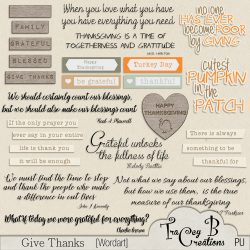 FAMILY
GRATEFUL
BLESSED
GIVE THANKS
When you love what you have
you have everything you need.
THANKSGIVING IS A TIME OF
TOGETHERNESS AND GRATITUDE
no one
HAS EVER
BECOME POOR
by GIVING
Happy
Thanksgiving
Turkey Day
be grateful
thankful
cutest
PUMPKIN
IN THE
PATCH
We should certainly count our blessings,
but we should also make our blessings count
HAPPY
THANKSGIVING
If the only prayer you
ever say in your entire
life is thank you
it will be enough
Grateful unlocks
the fullness of life
There is always
something to be
thankful for
We must find the time to stop
and thank the people who make
a difference in our lives
It is not what we say about our blessings,
but how we use them, is the true
measure of our thanksgiving
What if today we were grateful for everything?
Give Thanks [Wordart]
Tracey B
Creations